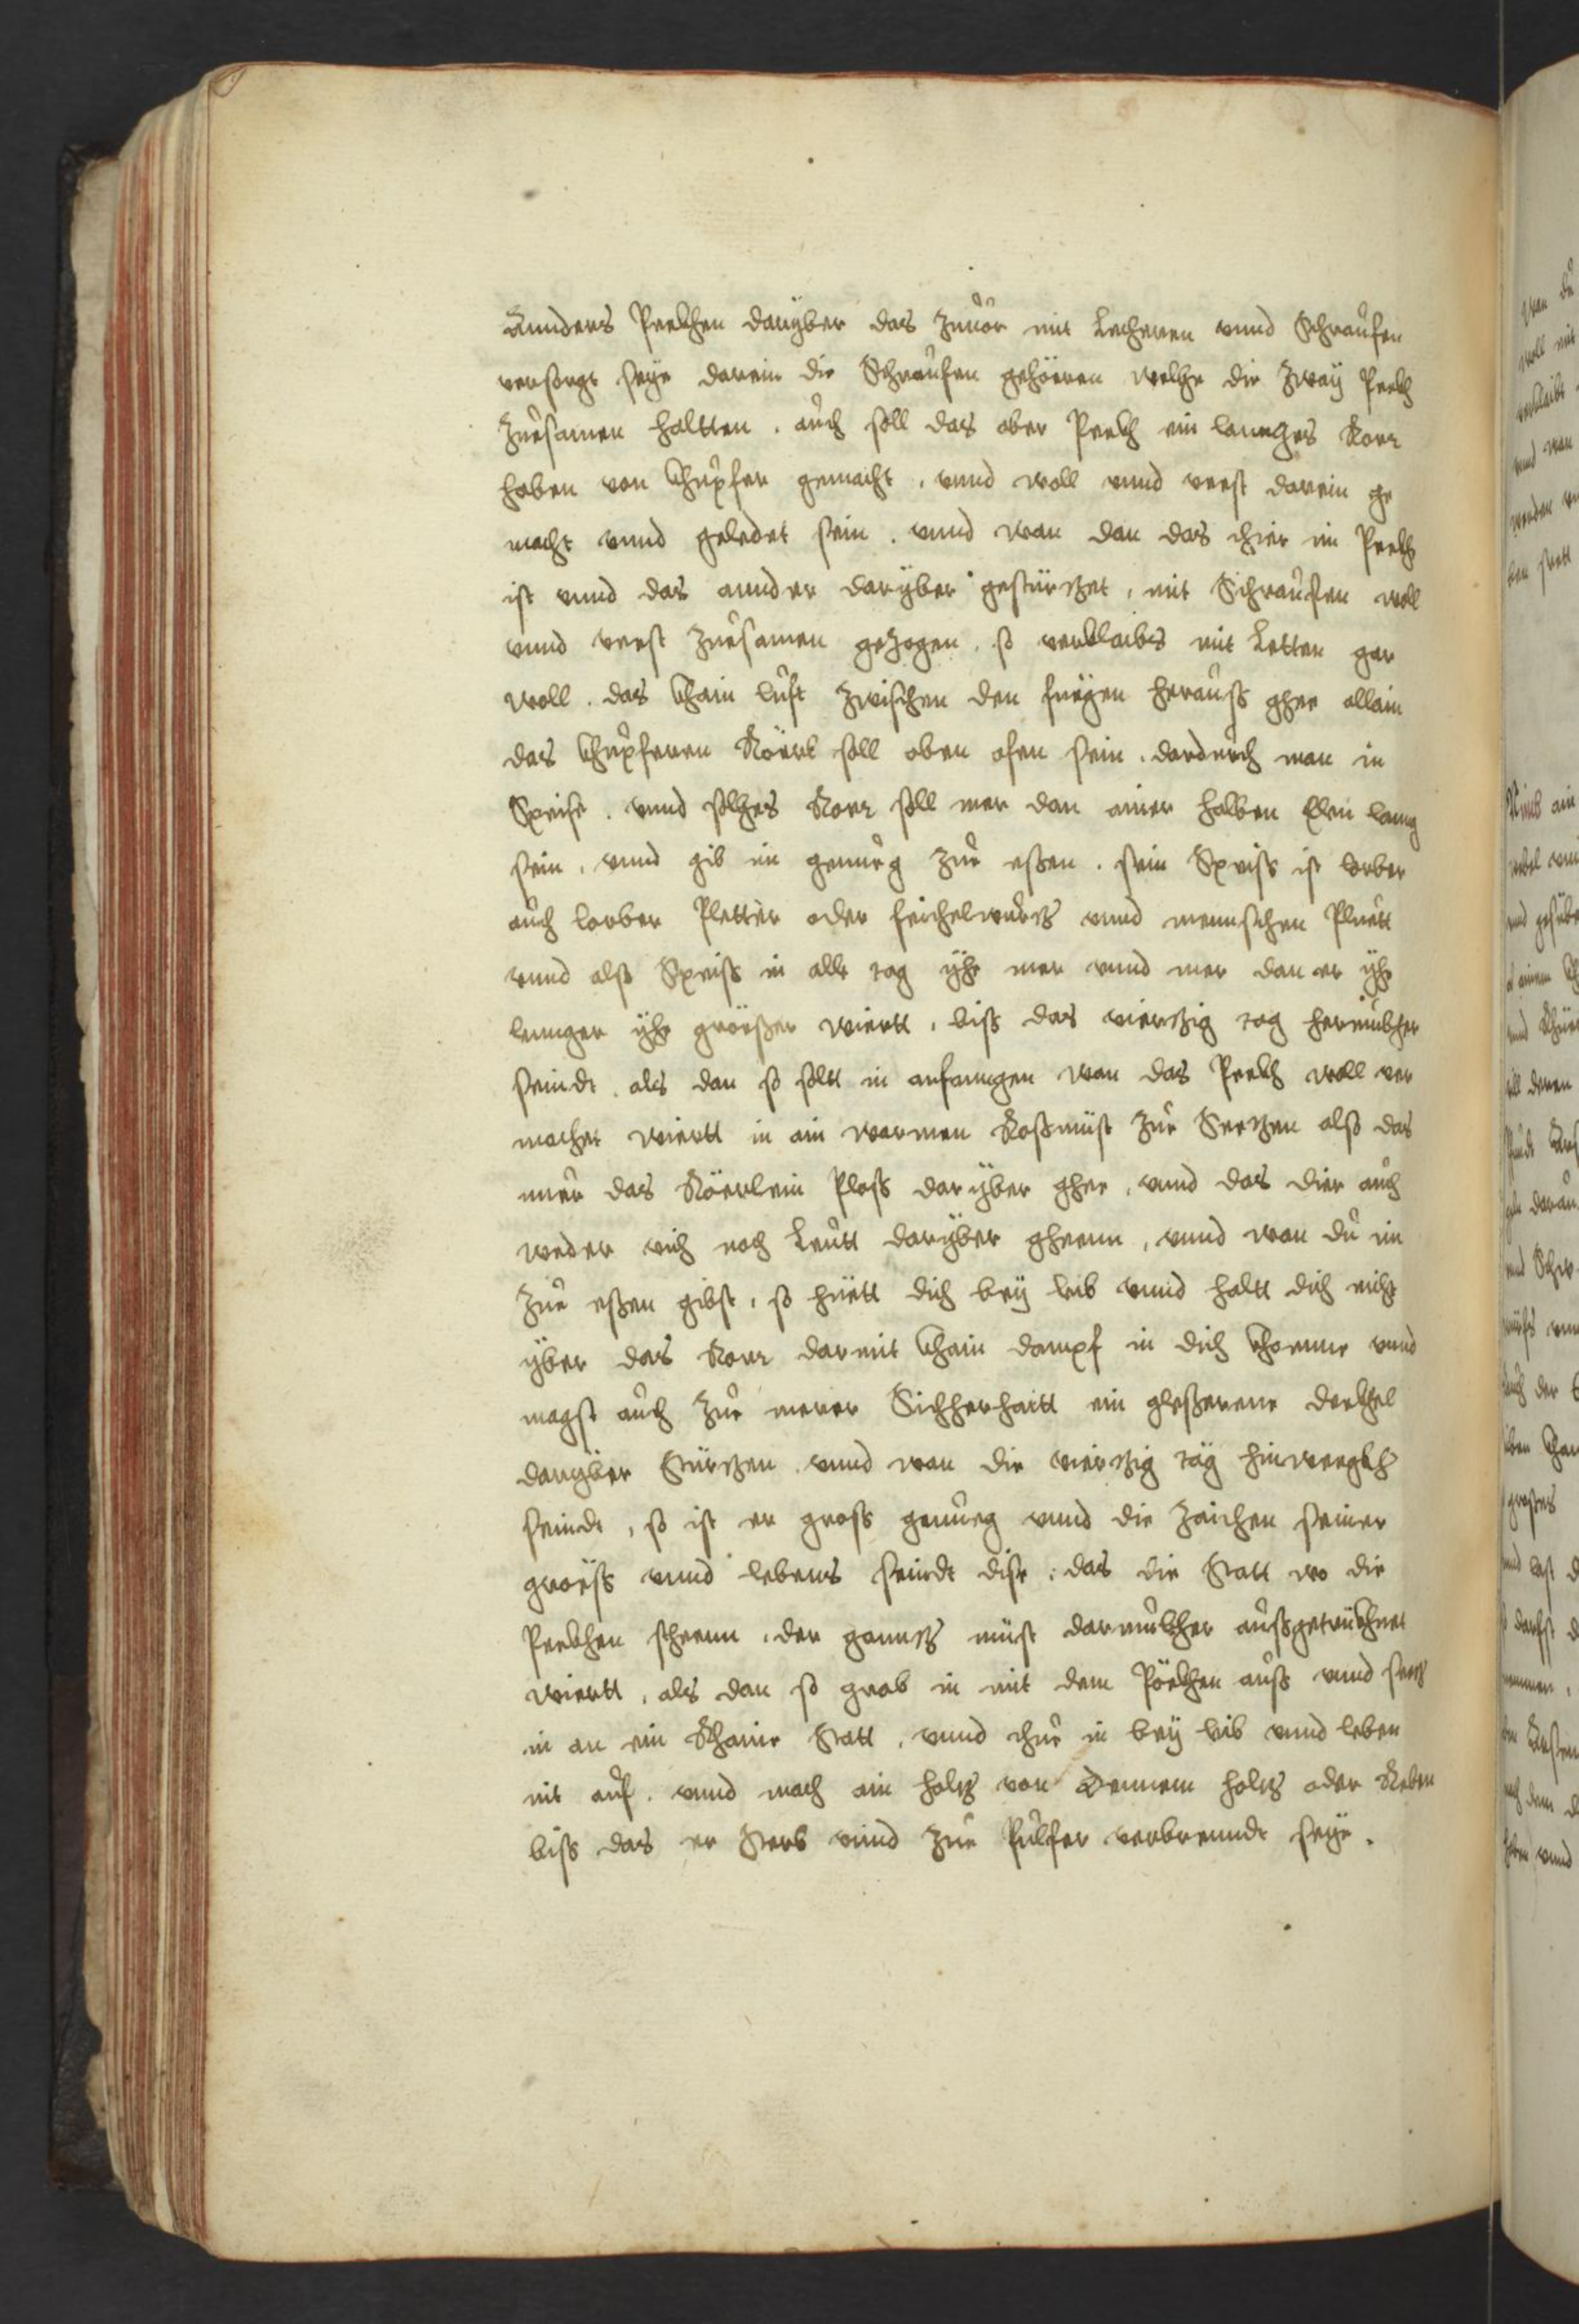 Annders Peekhen darÿber das zuuor mit Lecheren vnnd Schraufen
versorgt seÿe darein die Schraufen gehöeren welche die zwaÿ Peekh
zuesamen haltten. auch soll das ober Peekh ein lannges Rorr
haben von khupfer gemacht, vnnd woll vnnd veest darein ge
macht vnnd geledet sein. vnnd wan dan das thier im Peekh
ist vnnd das annder darÿber gestürtzet, mit Schraufen woll
vnnd veest zuesamen gezogen, so verklaibs mit Letten gar
woll. das khain luft zwischen den fuegen herauss ghee allain
das khupferen Röerl soll oben ofen sein. dardurch man in
Speise. vnnd solches Rorr soll mer dan ainer halben Elen lanng
sein, vnnd gib im genueg zue essen. sein Speiss ist lorber
auch lorber Pletter oder feichelwurtz vnnd mennschen Pluett
vnnd alss Speiss in alle tag ÿhe mer vnnd mer dan er ÿhe
lennger ÿhe groësser wiertt, biss das viertzig tag herumbher
seindt. als dan so soltt in anfanngen wan das Peekh woll ver
machet wiertt in ain warmen Rossmüst zue Seetzen alss das
nuer das Röerlein Ploss darÿber ghee, vnnd das dier auch
weder vich noch Leutt darÿber gheenn, vnnd wan du im
zue essen gibst, so hüett dich beÿ leib vnnd haltt dich nicht
ÿber das Rorr darmit khain dampf in dich khomme vnnd
magst auch zue merer Sichherhaitt ein glesserene dekhel
darÿber Stürtzen. vnnd wan die viertzig täg hinweegkh
seindt, so ist er gross genueg vnnd die zaichen seiner
groëss vnnd lebens seindt dise: das die Statt wo die
Peekhen steenn, der ganntz müst darumbher aussgetrükhnet
wiertt, als dan so grab in mit dem Pöekhen auss vnnd seetz
in an ein Khaine Statt, vnnd thue in beÿ leib vnnd leben
nit auf. vnnd mach ain holtz von Dennem holtz oder Reben
biss das er Sterb vnnd zue Pulfer verbrenndt seÿe.